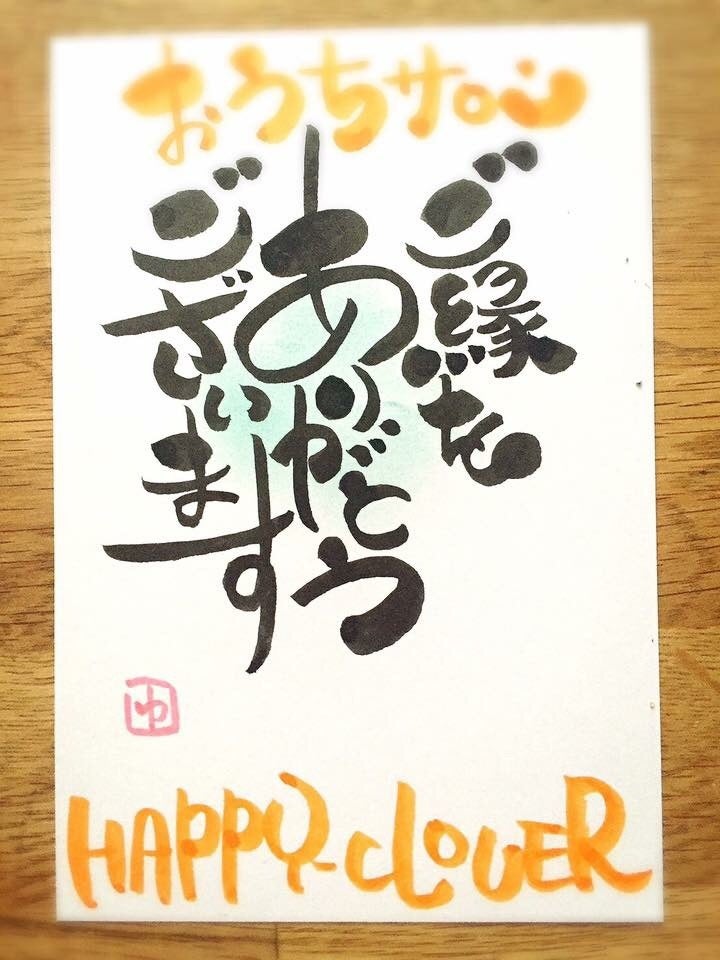 おうちサロン
ご縁を
ありがとう
ございます
ゆ
HAPPY-CLOVER